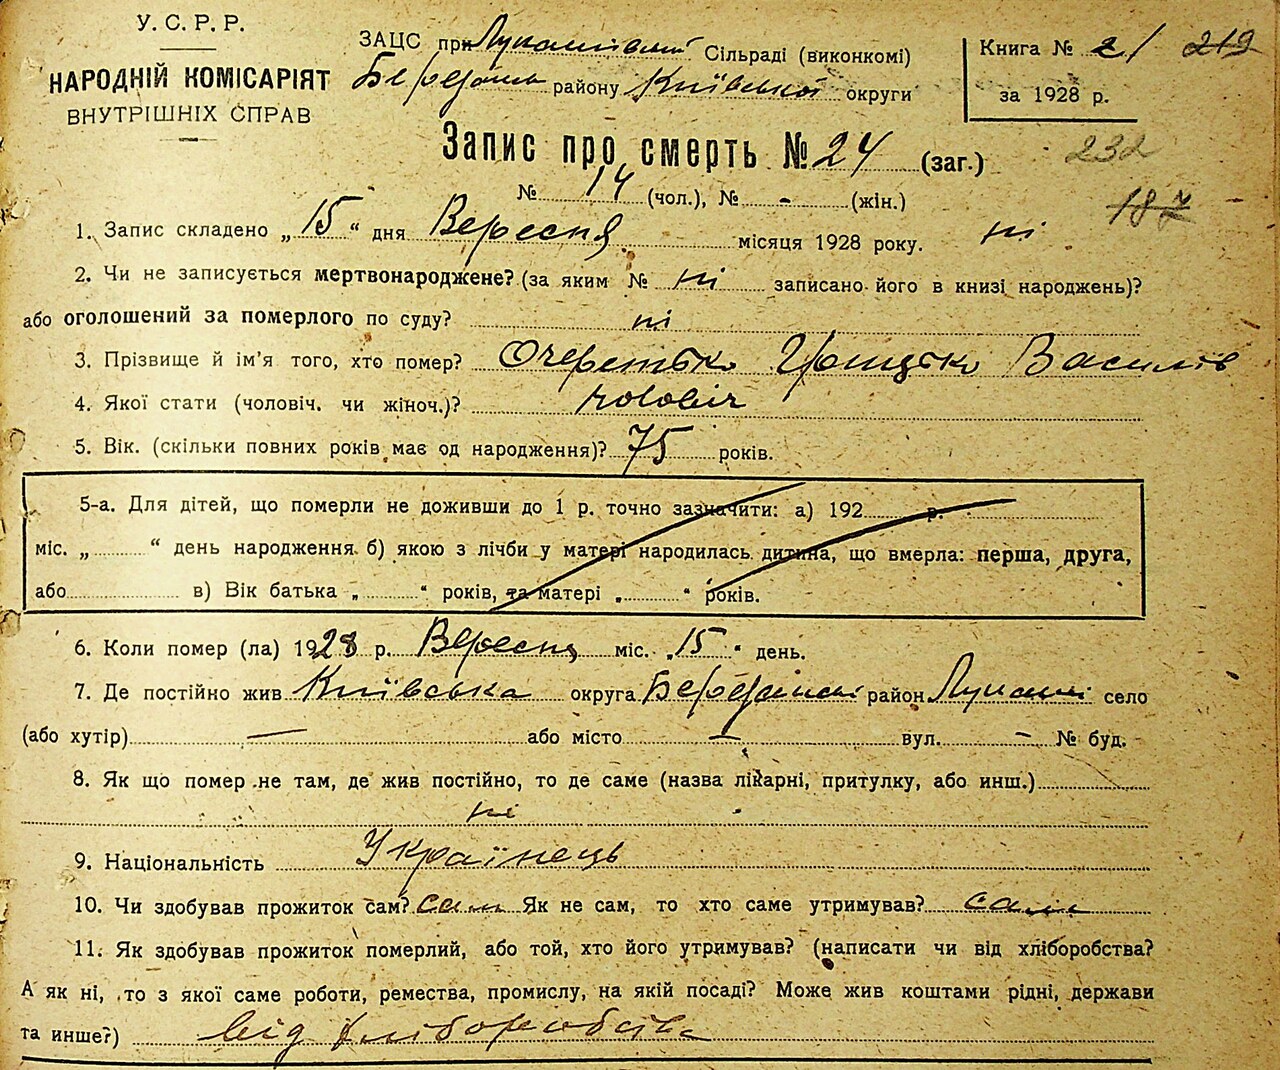 У. С. Р. Р.
НАРОДНІЙ КОМІСАРІЯТ
ВНУТРІШНІХ СПРАВ
ЗАЦС при Лукашівській Сільраді (виконкомі)
району Київської округи
Книга № 2/ 219
за 1928 р.
Запис про смерть № 24 (заг.)
232
№ 14 (чол.), № - (жін.)
187
1. Запис складено „15“ дня Вересня місяця 1928 року. ні
2. Чи не записується мертвонароджене? (за яким № ні записано його в книзі народжень)?
або оголошений за померлого по суду? ні
3. Прізвище й ім'я того, хто помер? Очеретько Грицько Василів
4. Якої стати (чоловіч. чи жіноч.)? чоловіч
5. Вік. (скільки повних років має од народження)? 75 років.
5-а. Для дітей, що померли не доживши до 1 р. точно зазначити: а) 192 р.
міс. „ “ день народження б) якою з лічби у матері народилась дитина, що вмерла: перша, друга,
або в) Вік батька „ “ років, та матері „ “ років.
6. Коли помер (ла) 1928 р. Вересня міс. „15“ день.
7. Де постійно жив Київська округа район Лукаші село
(або хутір) — або місто — вул. — № буд.
8. Як що помер не там, де жив постійно, то де саме (назва лікарні, притулку, або инш.)
ні
9. Національність Українець
10. Чи здобував прожиток сам? сам Як не сам, то хто саме утримував? сам
11. Як здобував прожиток померлий, або той, хто його утримував? (написати чи від хліборобства?
А як ні, то з якої саме роботи, ремества, промислу, на якій посаді? Може жив коштами рідні, держави
та инше?) від хліборобства